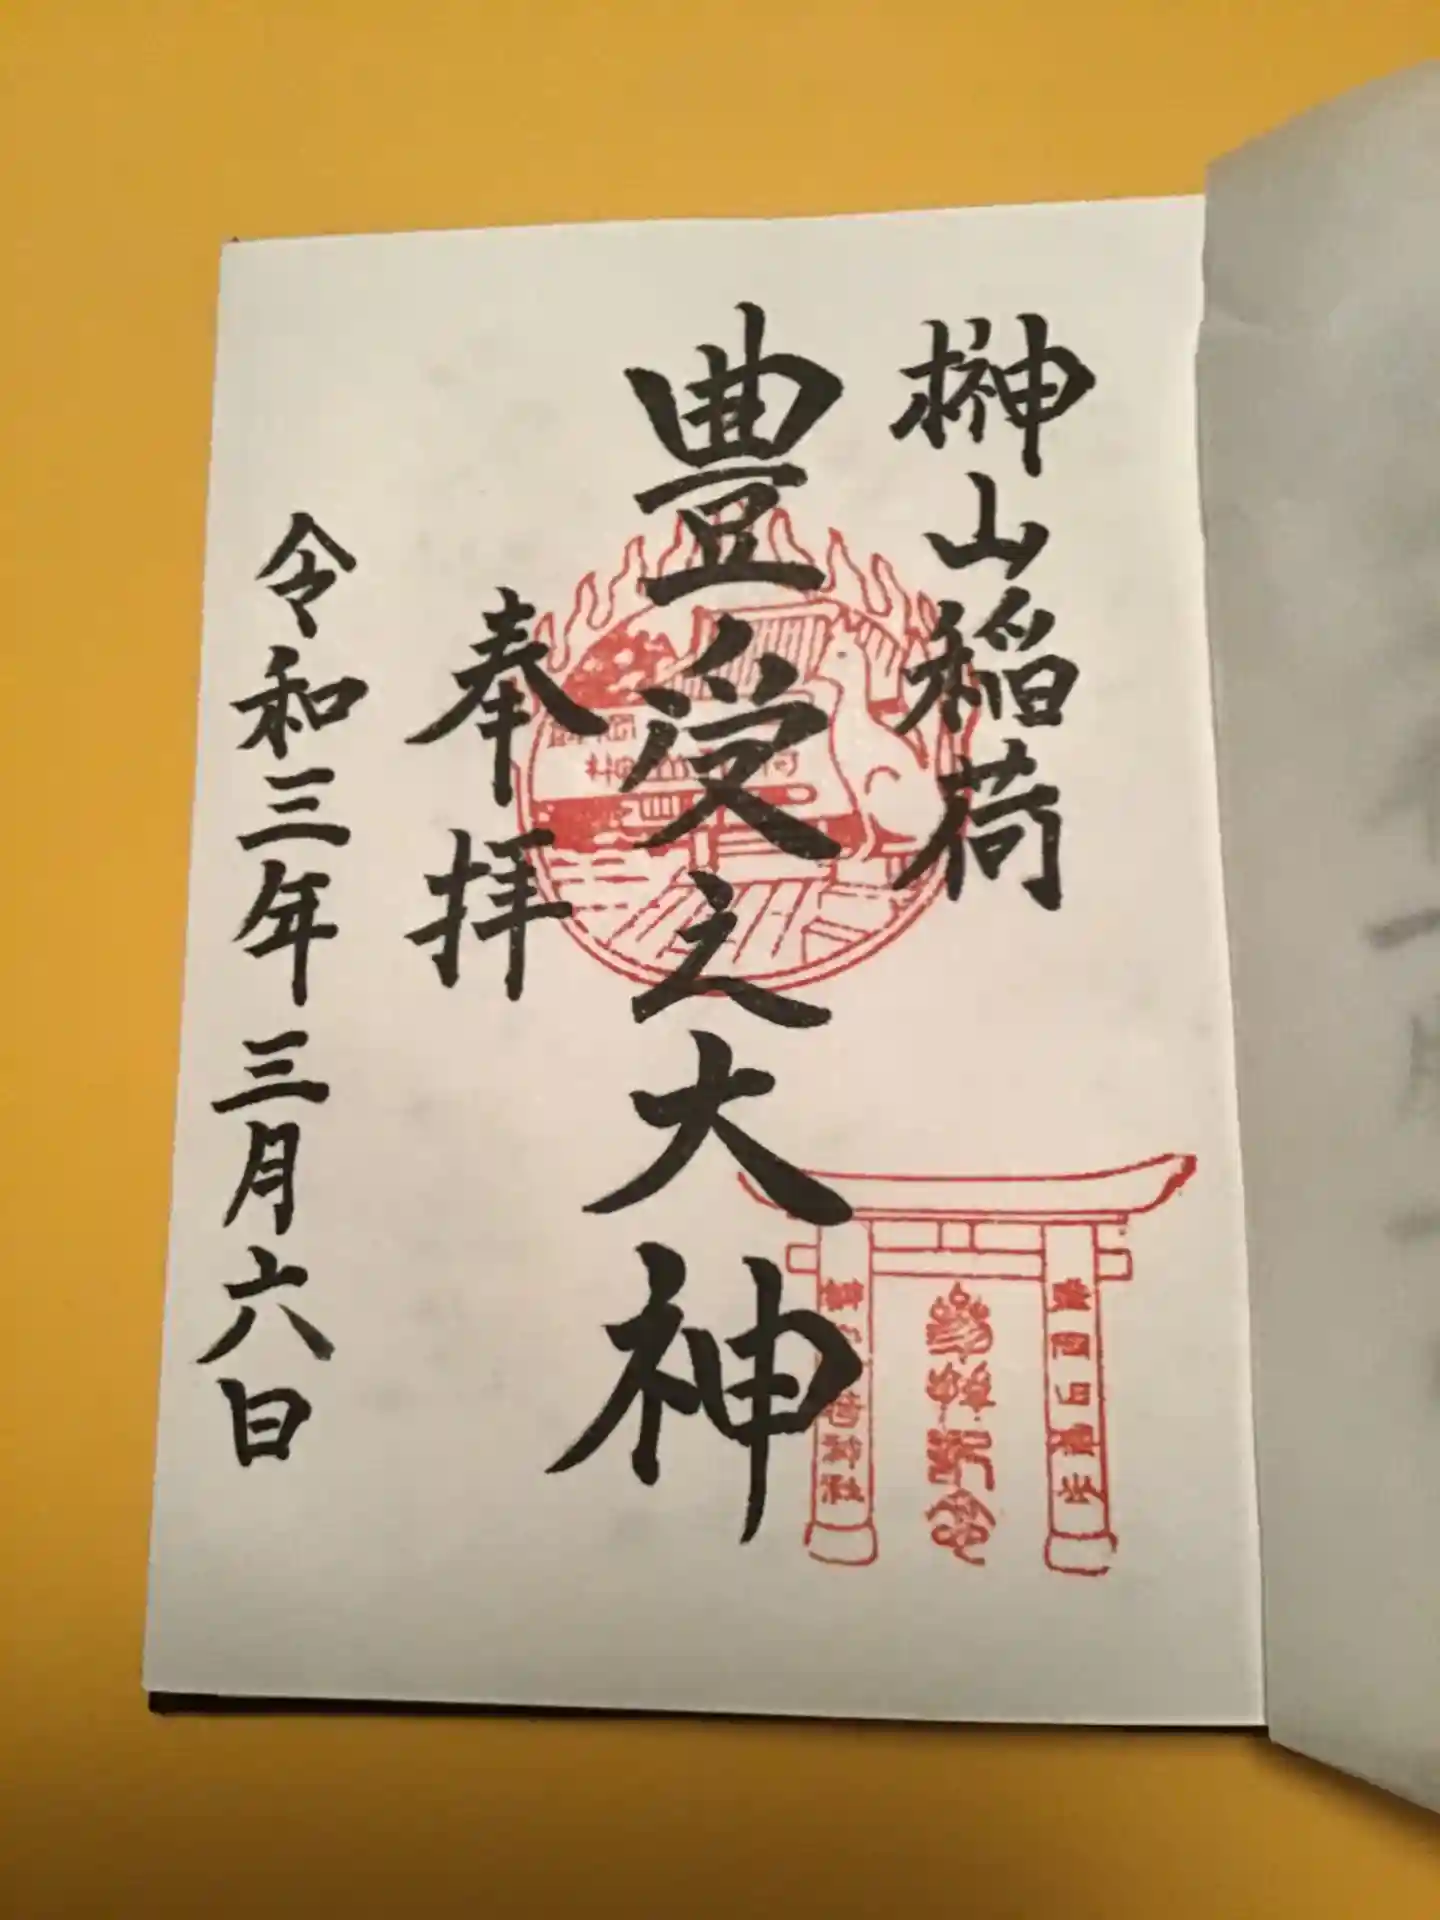 榊山稲荷
豊受之大神
奉拝
令和三年三月六日
参拝記念